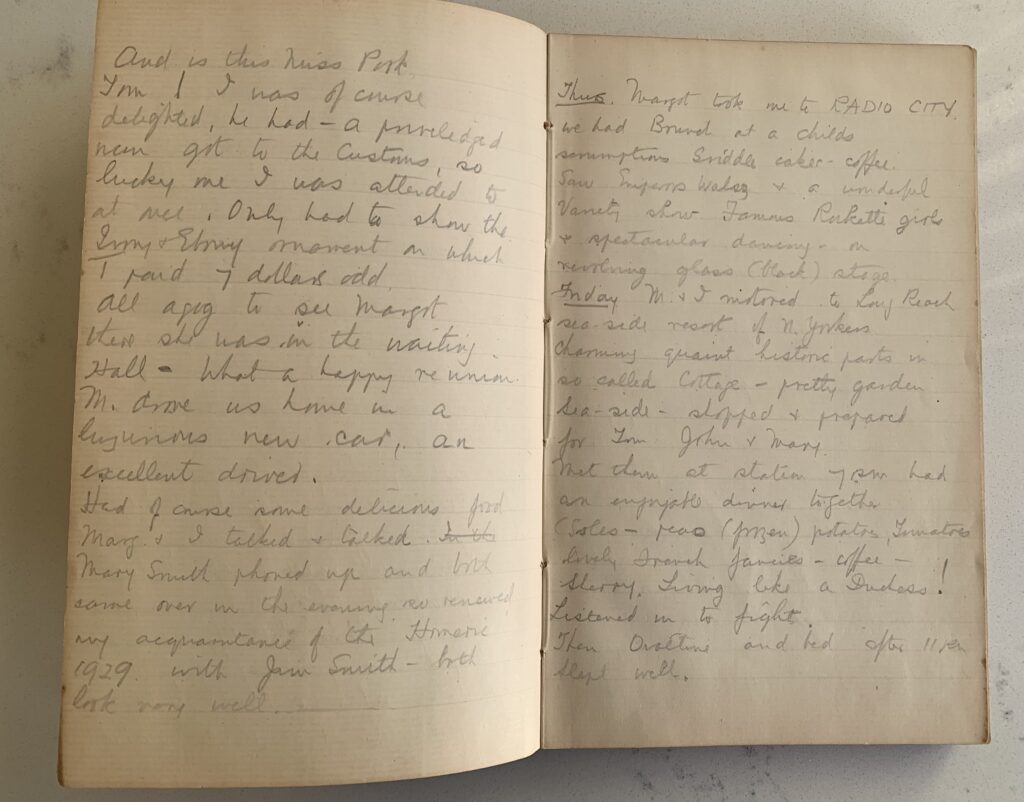 And is this Miss Park
Tom! I was of course
delighted, he had – a priviledged
man got to the Customs, so
lucky me I was attended to
at once. Only had to show the
Ivory & Ebony ornament on which
I paid 7 dollars odd.
All agog to see Margot
there she was in the waiting
Hall – What a happy reunion.
M. drove us home in a
luxurious new car, an
excellent driver.
Had of course some delicious food
Marg. & I talked & talked. In the
Mary Smith phoned up and both
came over in the evening so renewed
my acquaintance of the Homeric
1929 with Jim Smith – both
look very well.
Thurs. Margot took me to RADIO CITY.
we had Brunch at a Childs
scrumptious Griddle cakes – coffee.
Saw Emperors Waltz & a wonderful
Variety show. Famous Rockette girls
& spectacular dancing – on
revolving glass (black) stage
Friday M. & I motored to Long Beach
sea-side resort of N. Yorkers
charming quaint historic parts in
so called Cottage – pretty garden
sea-side – stopped & prepared
for Tom John & Mary.
Met them at station 7 pm had
an enjoyable dinner together
(Soles – peas (frozen) potatoes, Tomatoes
lovely French fancies – coffee –
Sherry. Living like a Duchess!
Listened in to fight.
Then Ovaltine and bed after 11 pm
Slept well.